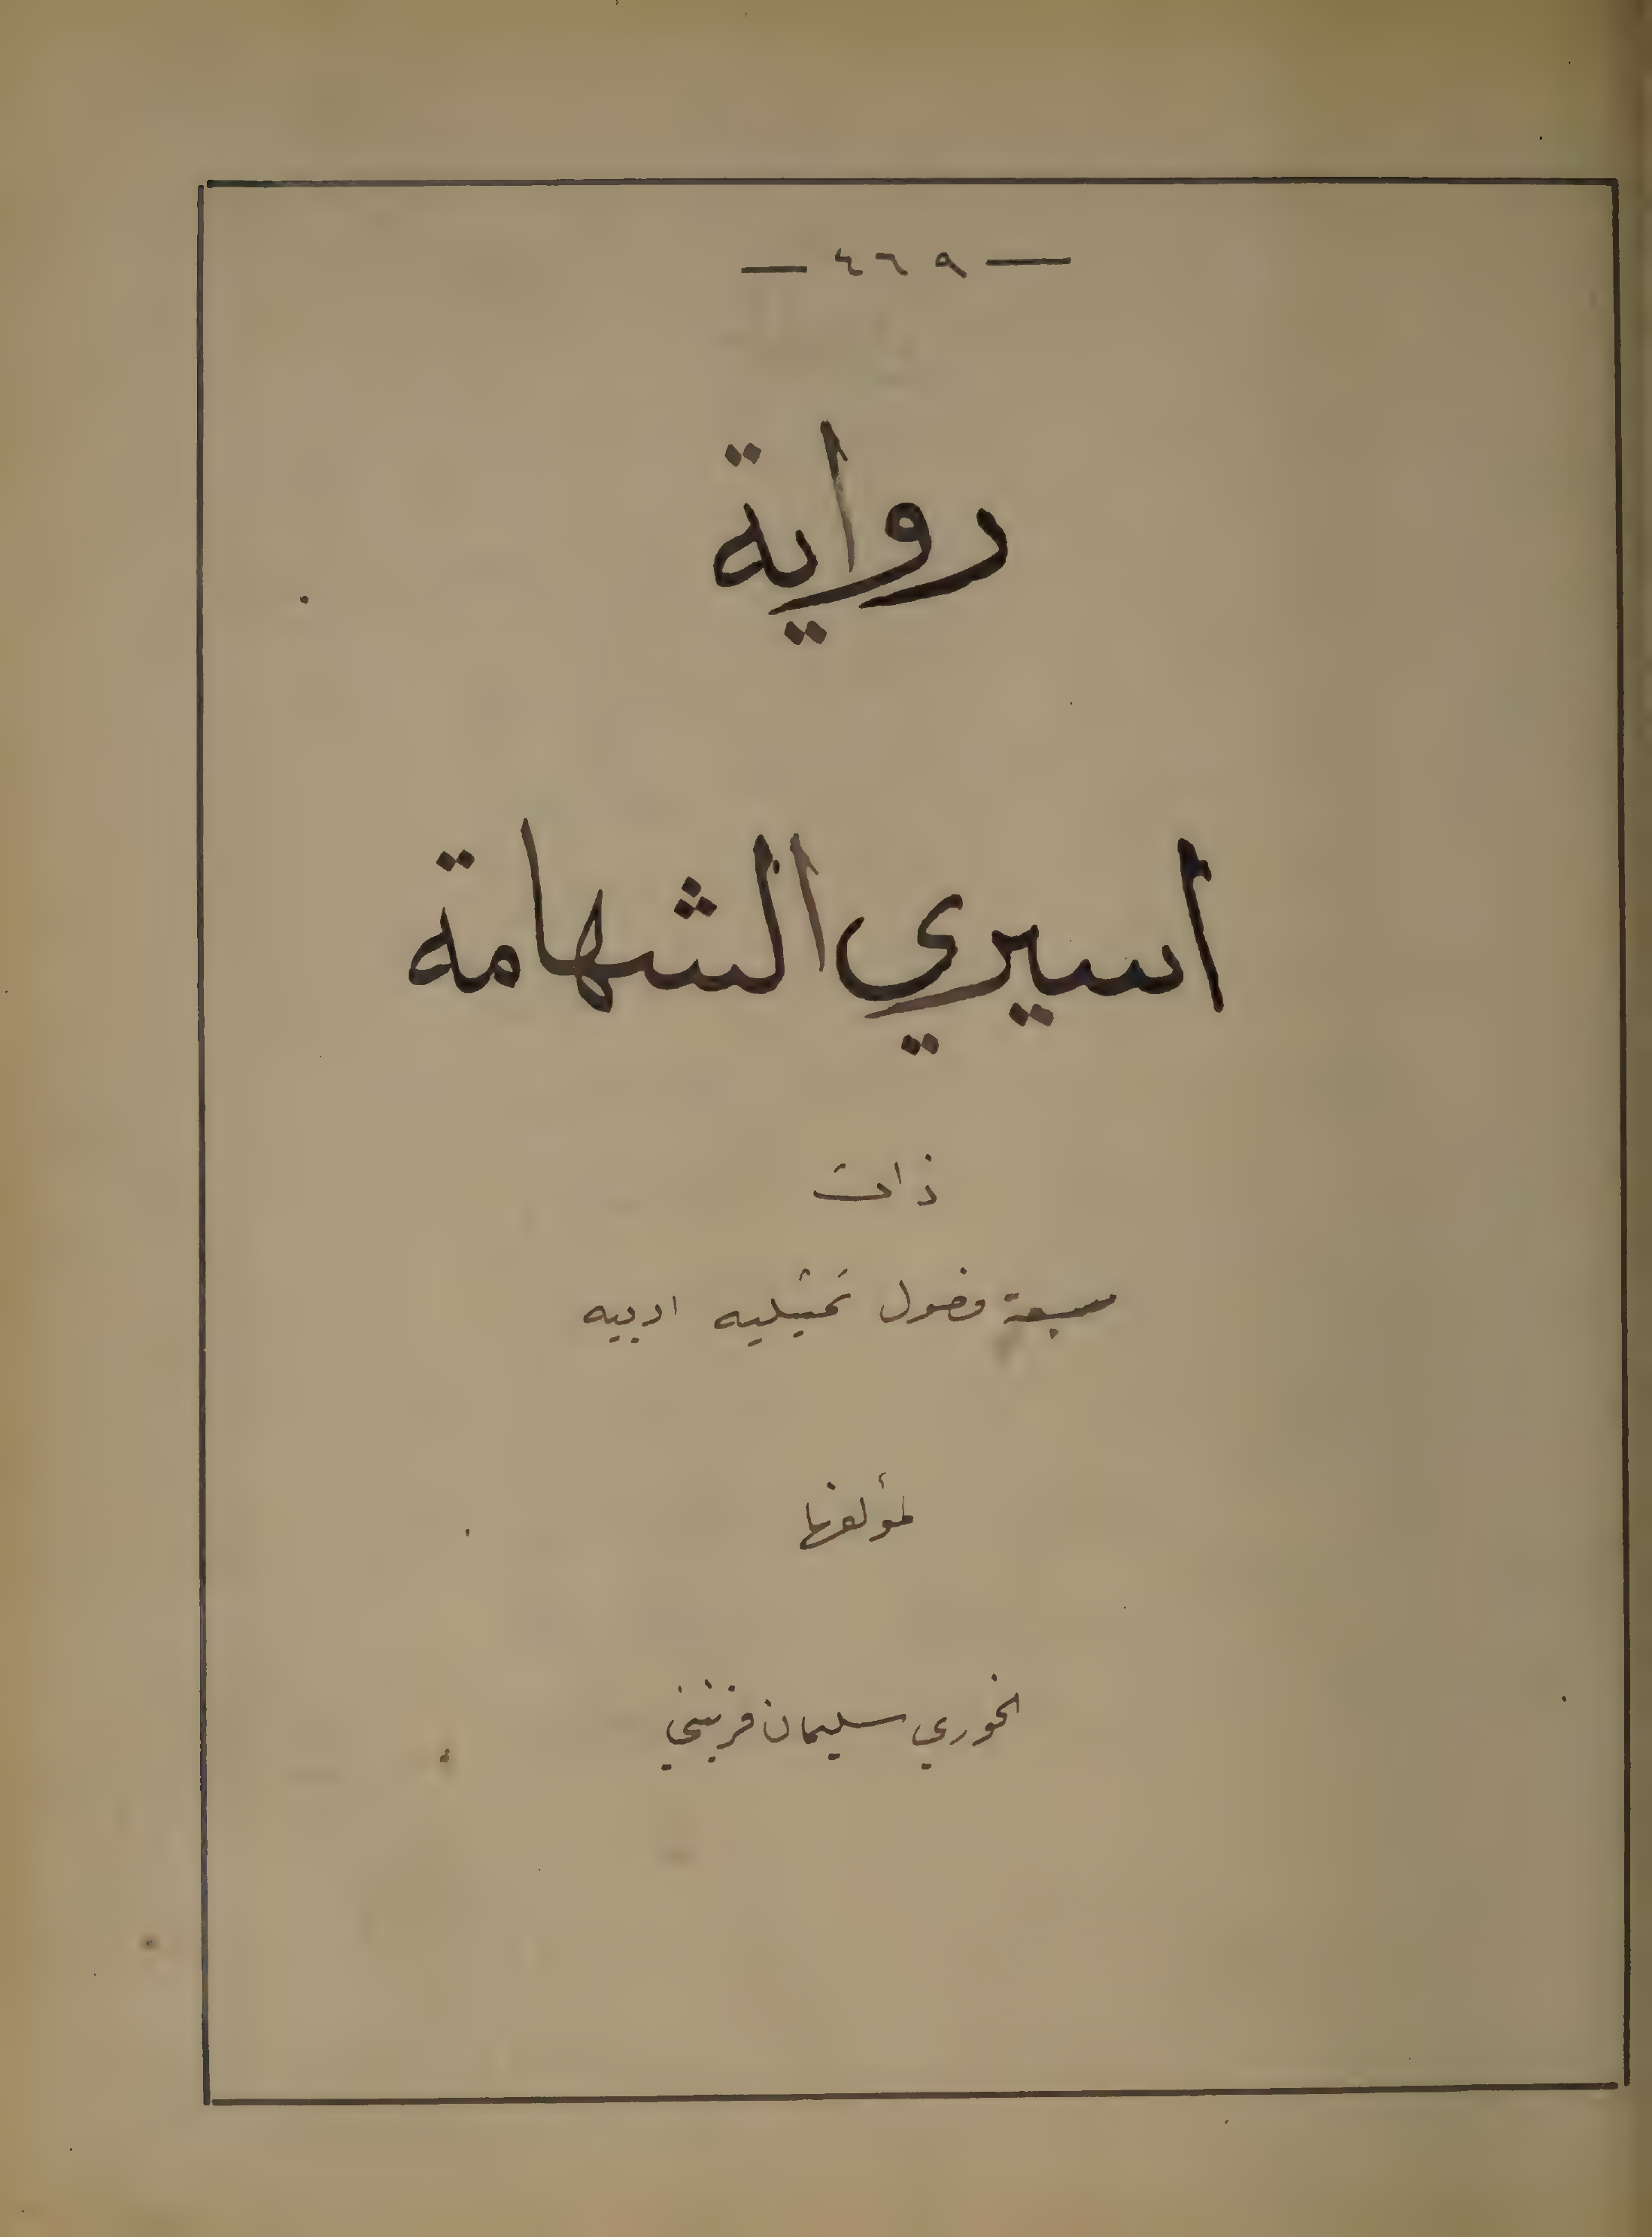 — ٤٦٩ —
رواية
اسيري الشهامة
ذات
سبعة فصول تمثيليه ادبيه
لمؤلفها
الخوري سليمان فرنيني